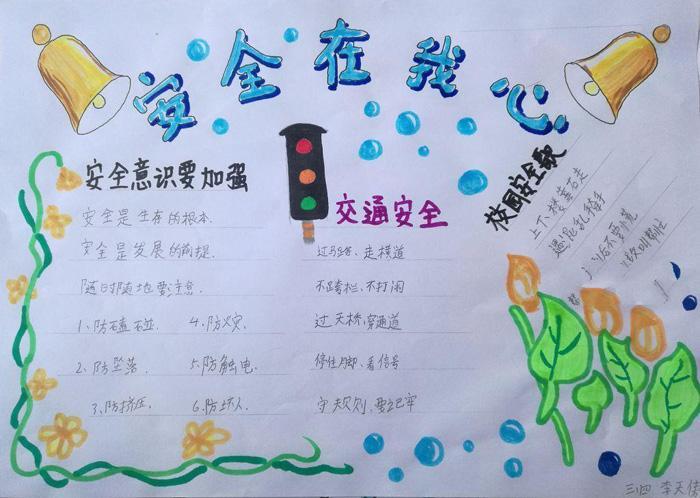 安全在我心
安全意识要加强
安全是生存的根本.
安全是发展的前提.
随时随地要注意.
1、防磕碰. 4、防火灾.
2、防坠落. 5、防触电.
3、防挤压. 6、防坏人.
交通安全
过马路、走横道
不跨栏、不打闹
过天桥,穿通道
停住脚、看信号
守规则,要记牢
校园安全歌
上下楼靠右走
三四 李天